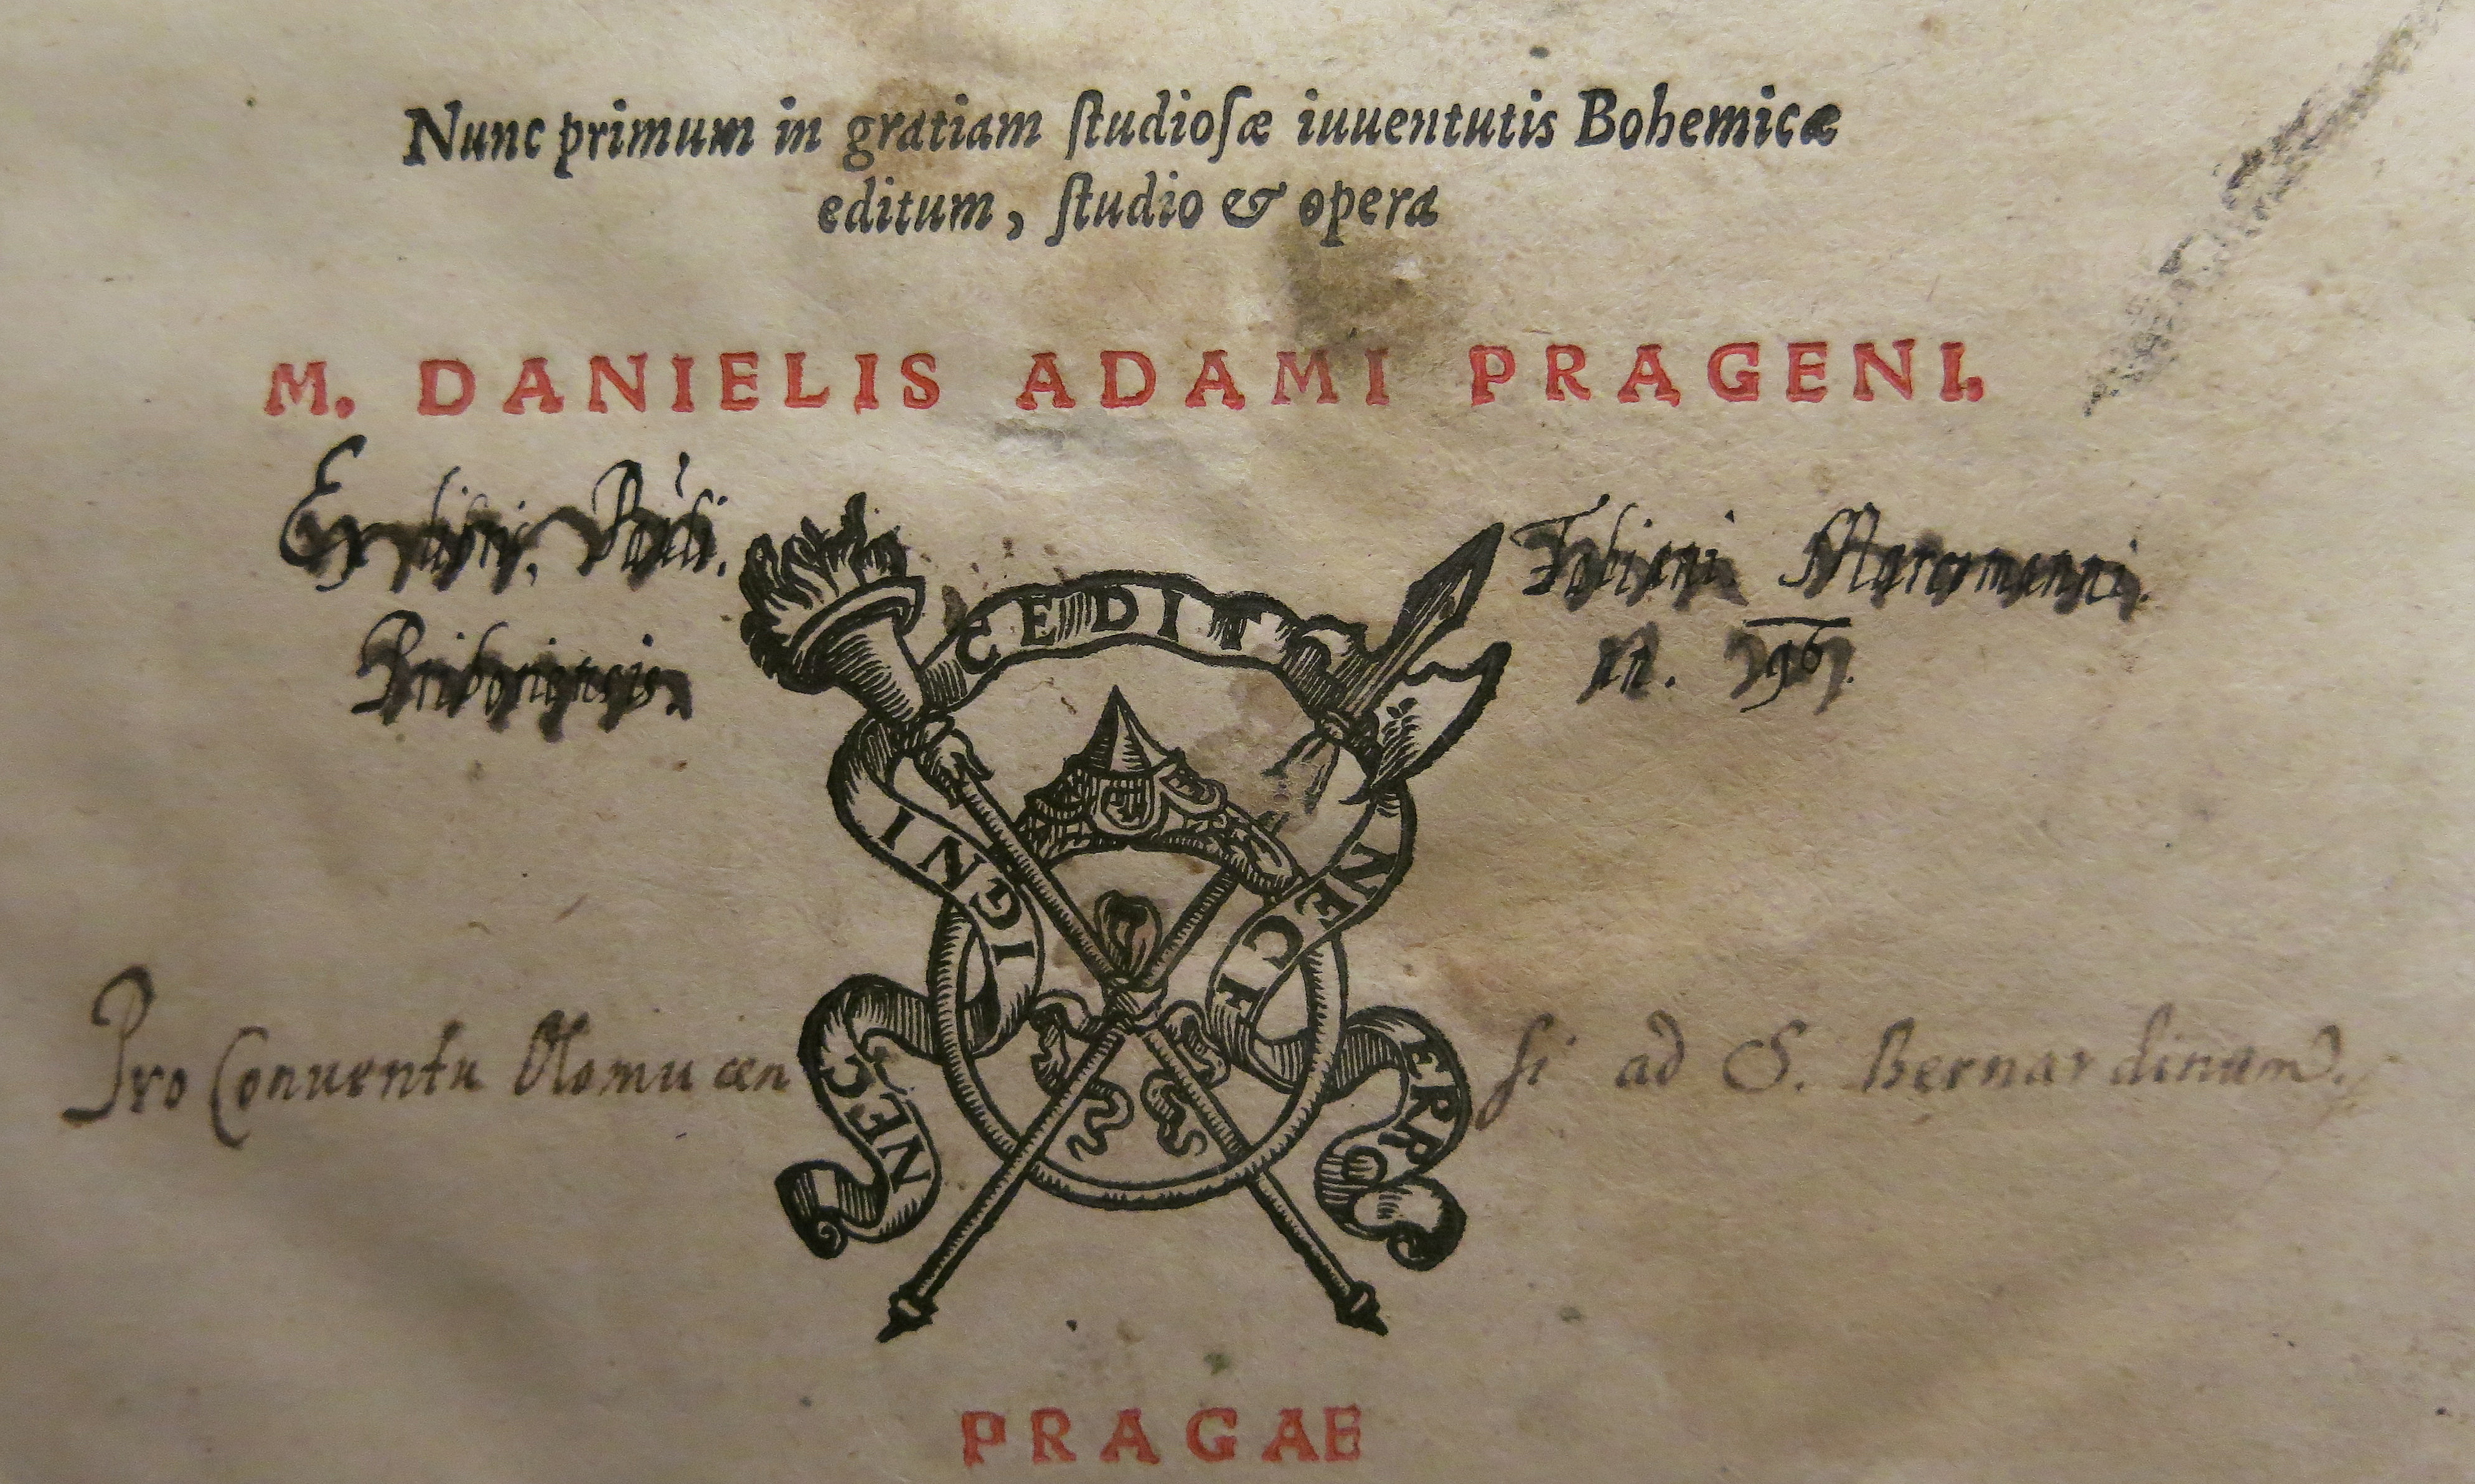 Nunc primum in gratiam ſtudioſæ iuuentutis Bohemicæ
editum, ſtudio & opera
M. DANIELIS ADAMI PRAGENI.
Ex libris Pauli Fabiani Marcomanni.
Priboriensis.
NEC IGNI CEDIT NEC FERRO
Pro Conuentu Olomucen si ad S. Bernardinum.
PRAGAE